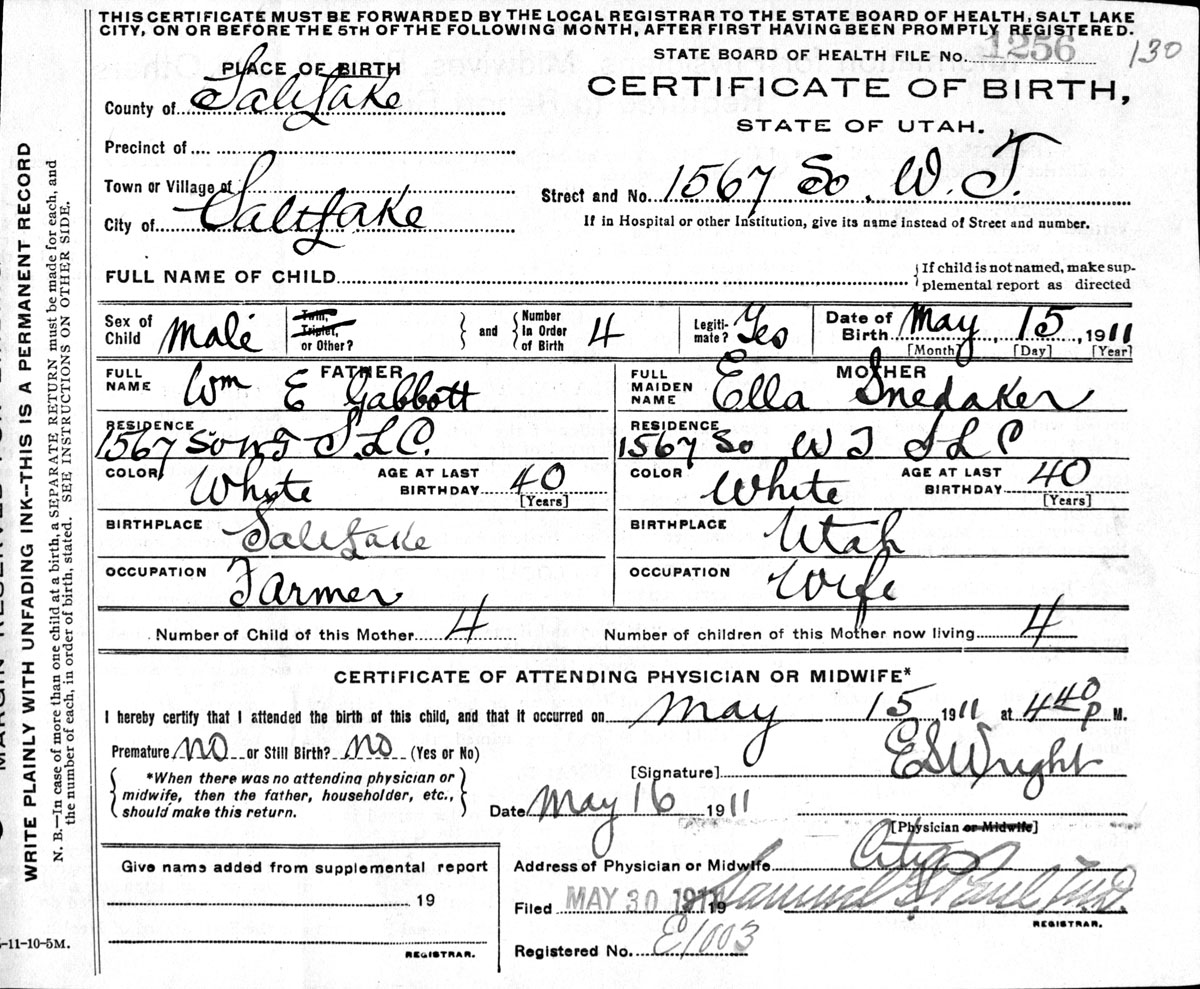 THIS CERTIFICATE MUST BE FORWARDED BY THE LOCAL REGISTRAR TO THE STATE BOARD OF HEALTH, SALT LAKE
CITY, ON OR BEFORE THE 5TH OF THE FOLLOWING MONTH, AFTER FIRST HAVING BEEN PROMPTLY REGISTERED.
STATE BOARD OF HEALTH FILE No. 1256 130
PLACE OF BIRTH
CERTIFICATE OF BIRTH,
County of Salt Lake
STATE OF UTAH.
Precinct of
Town or Village of
Street and No. 1567 So. W. T.
City of Salt Lake
If in Hospital or other Institution, give its name instead of Street and number.
FULL NAME OF CHILD
{If child is not named, make sup-
plemental report as directed
Sex of Child Male
Twin, Triplet, or Other?
and
Number In Order of Birth 4
Legiti-mate? Yes
Date of Birth May 15, 1911
[Month] [Day] [Year]
FATHER
FULL NAME Wm E Gabbott
MOTHER
FULL MAIDEN NAME Ella Snedaker
RESIDENCE
1567 So W T S.L.C.
RESIDENCE
1567 So W T S L C
COLOR Whyte
AGE AT LAST BIRTHDAY 40
[Years]
COLOR White
AGE AT LAST BIRTHDAY 40
[Years]
BIRTHPLACE Salt Lake
BIRTHPLACE Utah
OCCUPATION Farmer
OCCUPATION Wife
Number of Child of this Mother 4
Number of children of this Mother now living 4
CERTIFICATE OF ATTENDING PHYSICIAN OR MIDWIFE*
I hereby certify that I attended the birth of this child, and that it occurred on May 15 1911 at 4 40 P M.
Premature no or Still Birth? no (Yes or No)
[Signature] E S Wright
*When there was no attending physician or
midwife, then the father, householder, etc.,
should make this return.
Date May 16 1911
[Physician or Midwife]
Give name added from supplemental report
19
REGISTRAR.
Address of Physician or Midwife City
Filed MAY 30 1911 19 Samuel G Paul M.D.
REGISTRAR.
Registered No. E1003
WRITE PLAINLY WITH UNFADING INK--THIS IS A PERMANENT RECORD
N. B.—In case of more than one child at a birth, a SEPARATE RETURN must be made for each, and
the number of each, in order of birth, stated. SEE INSTRUCTIONS ON OTHER SIDE.
-11-10-5M.